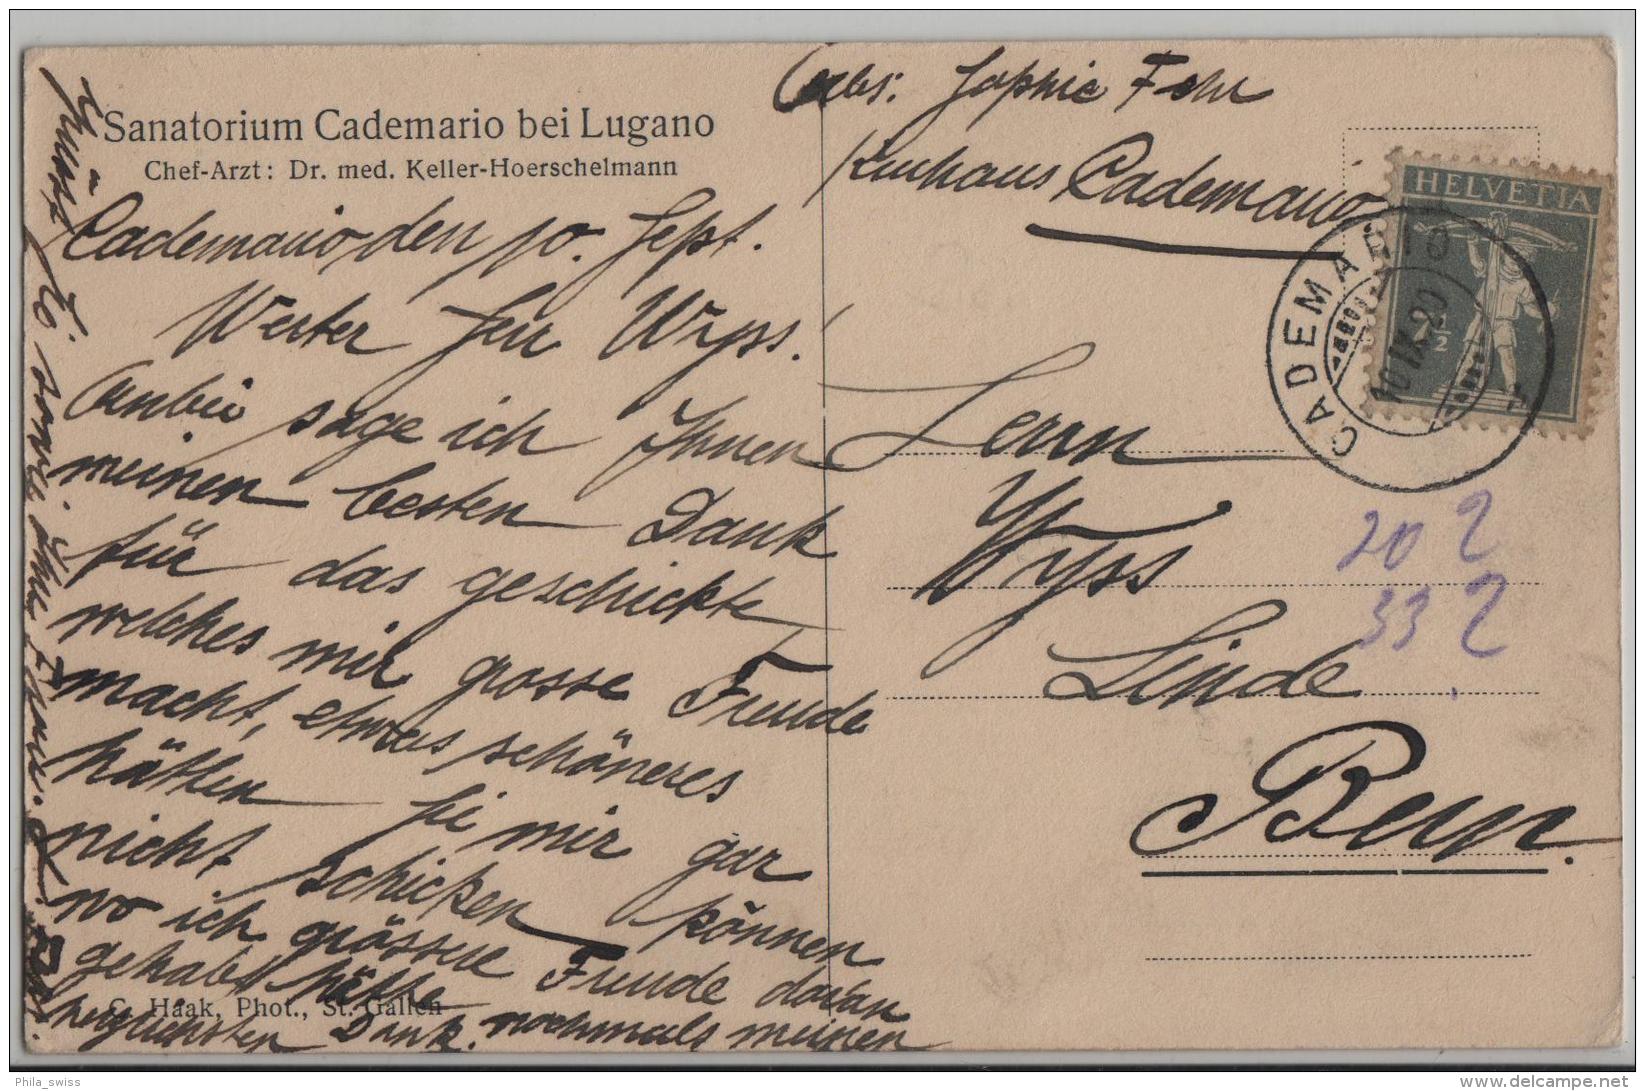 Sanatorium Cademario bei Lugano
Chef-Arzt: Dr. med. Keller-Hoerschelmann
Cademario den 10. Sept.
Werter Herr Wyss!
Anbei sage ich Ihnen
meinen besten Dank
für das geschickte,
welches mir grosse Freude
macht, etwas schöneres
hätten Sie mir gar
nicht schicken können
wo ich grössere Freude daran
gehabt hätte
herzlichsten Dank. nochmals meinen
C. Haak, Phot., St. Gallen
grüsst Sie
Abs: Sophie Fehr
Kurhaus Cademario
HELVETIA
7½
CADEMARIO
10.IX.20
Herrn
Wyss
Linde
Bern.
20
33
Phila_swiss
www.delcampe.net